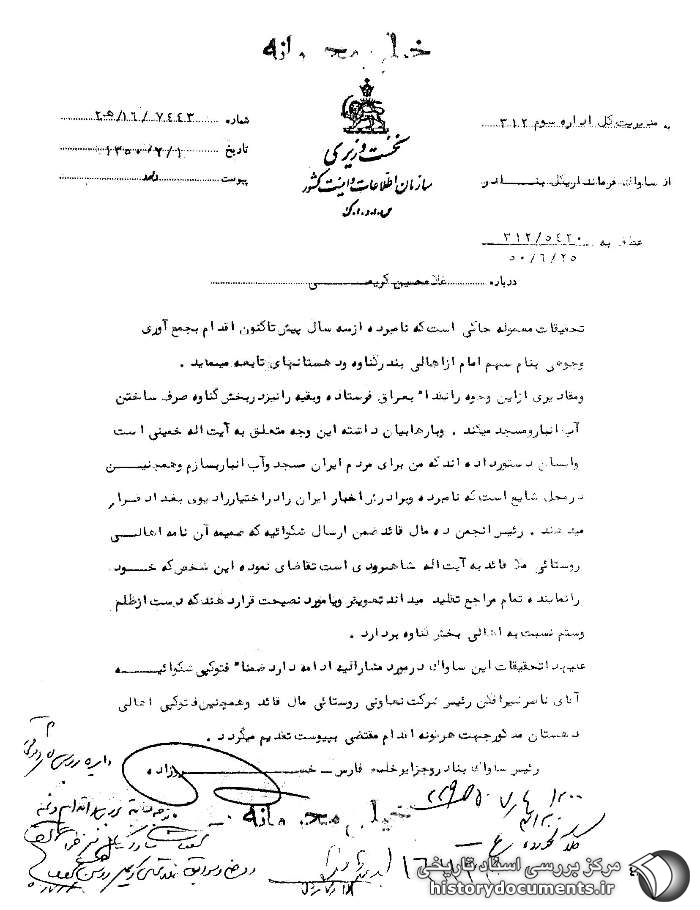 خیلی محرمانه
به مدیریت کل اداره سوم ۳۱۲
شماره ۷۴۴۳ / ۲۰۵/۱۶
نخست وزیری
تاریخ ۱۳۵۰/۷/۱
از ساواک فرمانداریکل بنادر
سازمان اطلاعات و امنیت کشور
پیوست دارد
س.ا.و.ا.ک
عطف به ۳۱۲/۵۴۲۰
۵۰/۶/۲۵
درباره غلامحسین کریمی
تحقیقات معموله حاکی است که نامبرده ازسه سال پیش تاکنون اقدام بجمع آوری
وجوهی بنام سهم امام ازاهالی بندرگناوه ودهستانهای تابعه مینماید .
ومقادیری ازاین وجوه رانقدا" بعراق فرستاده وبقیه رانیزدربخش گناوه صرف ساختن
آب انبارومسجد میکند . وبارهابیان داشته این وجه متعلق به آیت اله خمینی است
وایشان دستورداده اندکه من برای مردم ایران مسجد وآب انباربسازم وهمچنیـــن
درمحل شایع است که نامبرده وبرادرش اخبار ایران رادراختیاررادیوی بغداد قرار
میدهند . رئیس انجمن ده مال قائد ضمن ارسال شکوائیه که ضمیمه آن نامه اهالـــی
روستائی ملا قائد به آیت اله شاهرودی است تقاضای نموده این شخص که خـــود
رانماینده تمام مراجع تقلید میداند تعویض ویامورد نصیحت قرارد هند که دست ازظلم
وستم نسبت به اهالی بخش گناوه بردارد .
علیهذاتحقیقات این ساواک درمورد مشارالیه ادامه دارد ضمنا" فتوکپی شکوائیـــه
آقای ناصرشیرافکن رئیس شرکت تعاونی روستائی مال قائد وهمچنین فتوکپی اهالی
دهستان مذکورجهت هرگونه اقدام مقتضی بپیوست تقدیم میگردد .
رئیس ساواک بنادروجزایرخلیج فارس –
خیلی محرمانه
مرکز بررسی اسناد تاریخی
historydocuments.ir